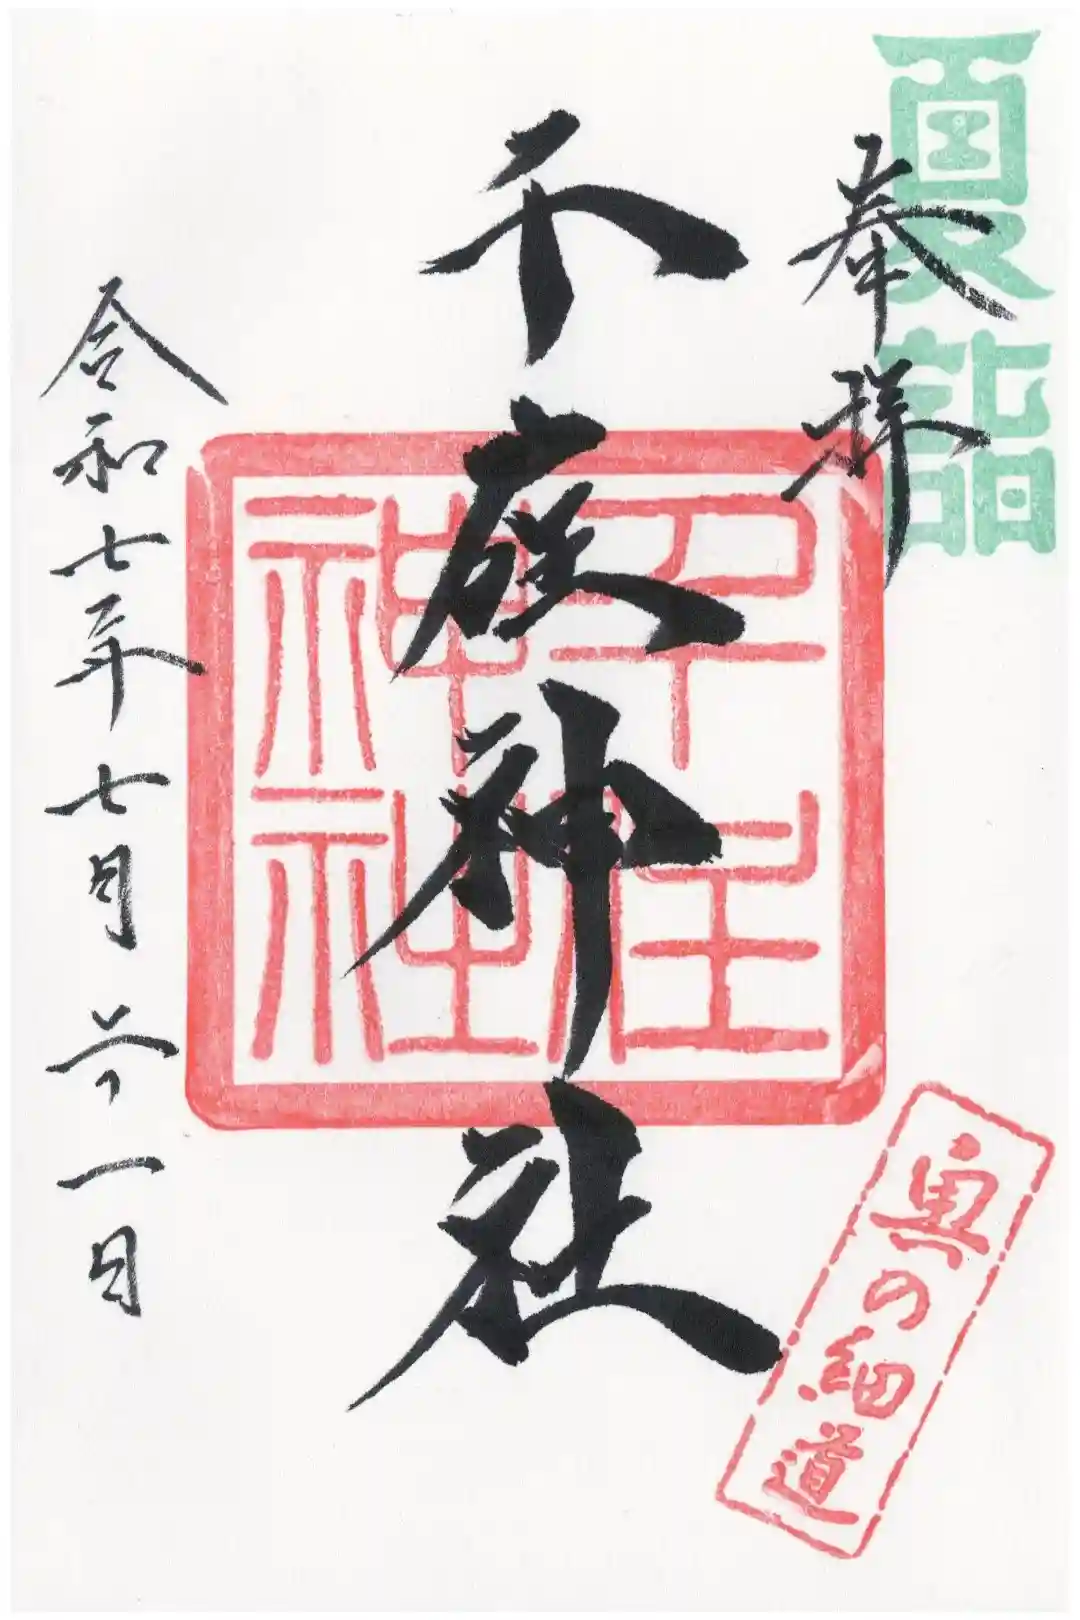 夏詣
奉拝
千住神社
千住神社
令和七年七月二十一日
奥の細道